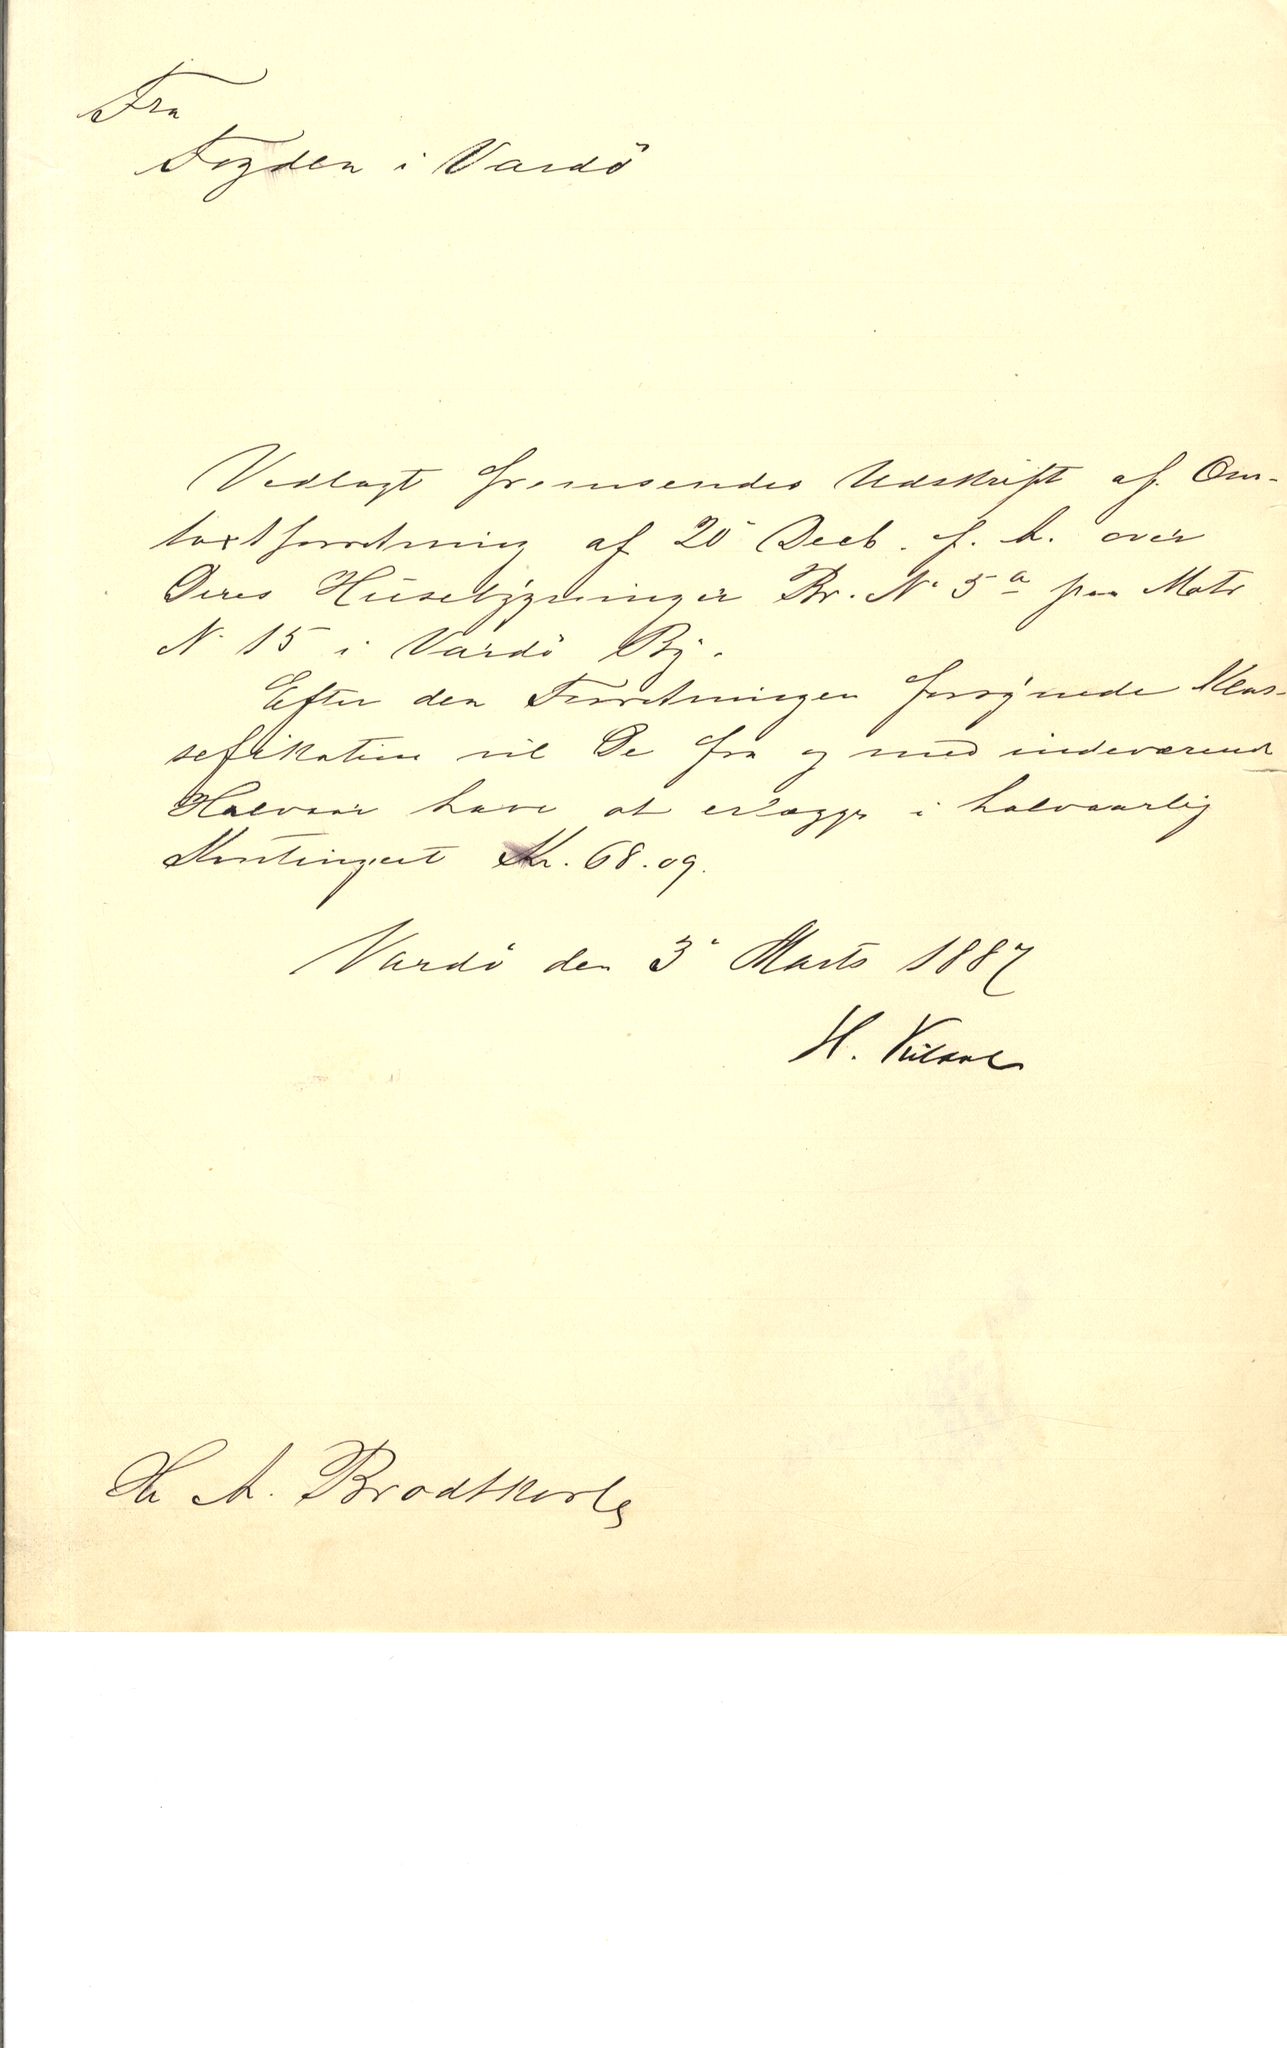 Fra
Fogden i Vardö
Vedlagt fremsendes Udskrift af Om-
taxtforretning af 20 Decb. f. A. over
Deres Husebygninger Br. N. 5 a paa Matr
N. 15 i Vardö By.
Efter den Forretningen Klas-
sefikation vil De fra og med indeværende
Halvaar have at erlægge i halvaarlig
Kontingent Kr. 68.09.
Vardö den 3 Marts 1887
H.
Hr A. Brodtkorb